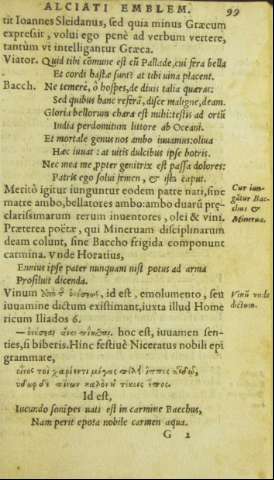 ALCIATI EMBLEM. 99
tit Ioannes Sleidanus, sed quia minus Græcum
expressit, volui ego penè ad verbum vertere,
tantùm vt intelligantur Græca.
Viator. Quid tibi cōmune est cū Pallade, cui fera bella
Et cordi hastæ sunt? at tibi vina placent.
Bacch. Ne temerè, ô hospes, de diuis talia quæras:
Sed quibus hanc referā, disce maligne, deam.
Gloria bellorum chara est mihi: testis ad ortū
India perdomitum littore ab Oceani.
Et mortale genus nos ambo iuuamus: oliua
Hæc iuuat: at vitis dulcibus ipse botris.
Nec mea me, propter genitrix est passa dolores:
Patris ego solui femen, & ista caput.
Meritò igitur iunguntur eodem patre nati, sine
matre ambo, bellatores ambo: ambo duarū præ-
clarissimarum rerum inuentores, olei & vini.
Cur iun-
gūtur Bac-
chus &
Minerua.
Præterea poëtæ, qui Mineruam disciplinarum
deam colunt, sine Baccho frigida componunt
carmina. vnde Horatius,
Ennius ipse pater nunquam nisi potus ad arma
Prosiluit dicenda.
Vinum id est, emolumento, seu
Vinū vnde
dictum.
iuuamine dictum existimant, iuxta illud Home
ricum Iliados 6.
hoc est, iuuamen sen-
ties, si biberis. Hinc festiuè Niceratus nobili epi
grammate,
Id est,
Iucundo sonipes vati est in carmine Bacchus,
Nam perit epota nobile carmen aqua.
G 2